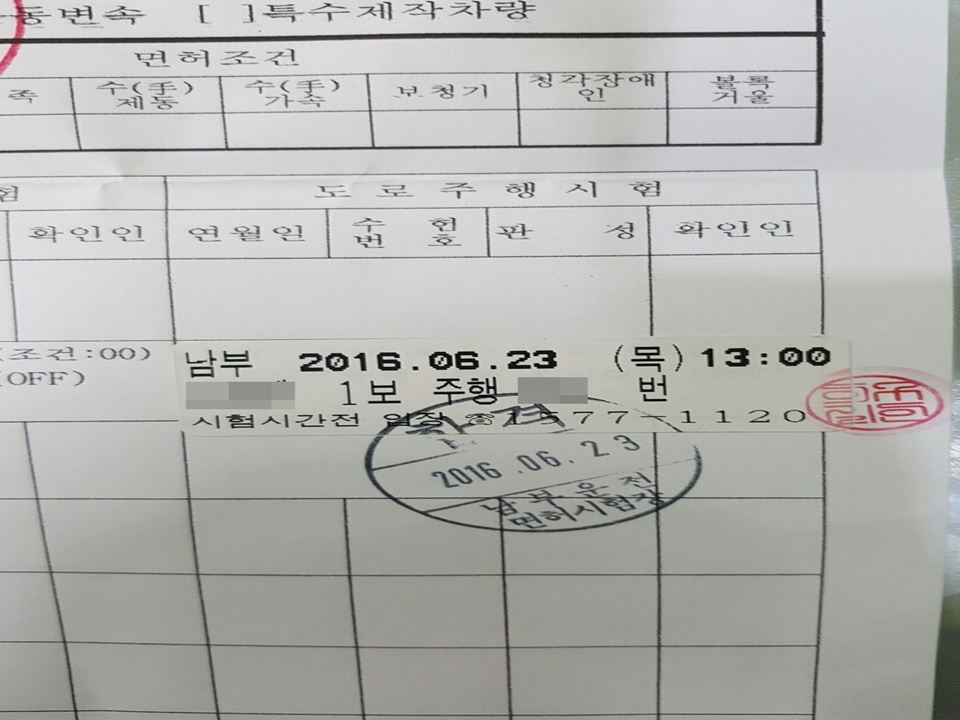 동변속 [ ]특수제작차량
면허조건
족 수(手)제동 수(手)가속 보청기 청각장애인 볼록거울
험 도로주행시험
확인인 연월일 수험번호 판성 확인인
(조건:00)
(OFF)
남부 2016.06.23 (목) 13:00
1보 주행 번
시험시간전 입장 ☎1577-1120
2016.06.23
남부운전
면허시험장